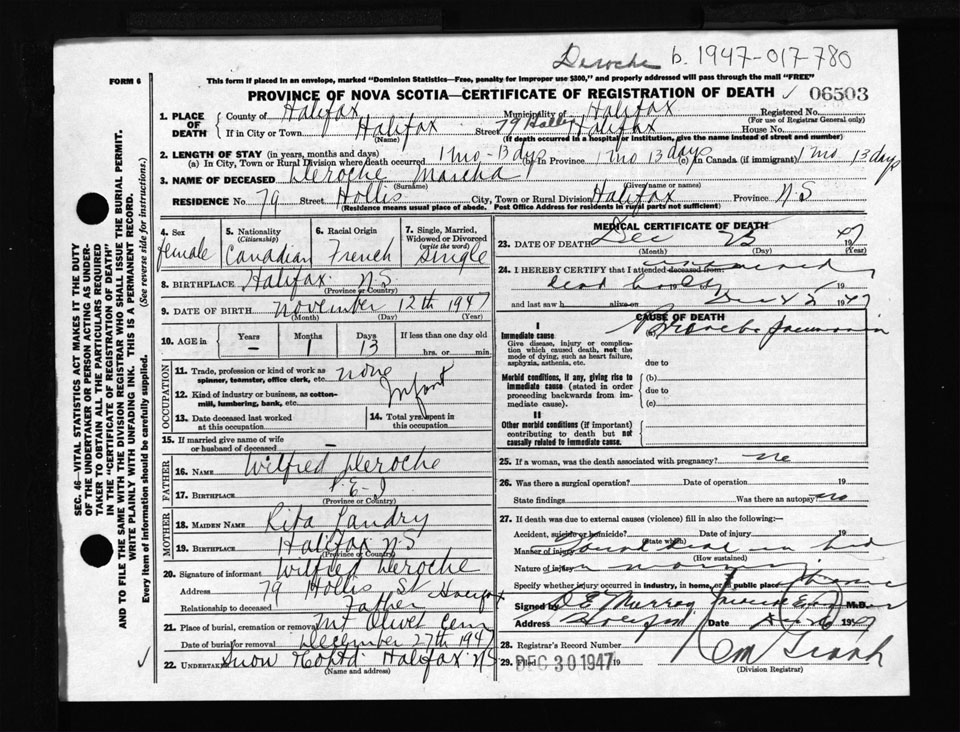 Deroche b. 1947-017-780
FORM 6
This form if placed in an envelope, marked "Dominion Statistics—Free, penalty for improper use $300," and properly addressed will pass through the mail "FREE"
PROVINCE OF NOVA SCOTIA—CERTIFICATE OF REGISTRATION OF DEATH ✓ 06503
SEC. 46—VITAL STATISTICS ACT MAKES IT THE DUTY
OF THE UNDERTAKER OR PERSON ACTING AS UNDER-
TAKER TO OBTAIN ALL THE PARTICULARS REQUIRED
IN THE "CERTIFICATE OF REGISTRATION OF DEATH"
AND TO FILE THE SAME WITH THE DIVISION REGISTRAR WHO SHALL ISSUE THE BURIAL PERMIT.
WRITE PLAINLY WITH UNFADING INK. THIS IS A PERMANENT RECORD.
Every item of information should be carefully supplied. (See reverse side for instructions.)
1. PLACE OF DEATH County of Halifax Municipality of Halifax Registered No.
(For use of Registrar General only)
If in City or Town Halifax Street 79 Hollis Halifax House No.
(Name) (If death occurred in a hospital or institution, give the name instead of street and number)
2. LENGTH OF STAY (in years, months and days)
(a) In City, Town or Rural Division where death occurred 1 mo - 13 dys (b) In Province 1 mo 13 days (c) in Canada (if immigrant) 1 mo 13 days
3. NAME OF DECEASED Deroche Marcha
(Surname) (Given name or names)
RESIDENCE No. 79 Street Hollis City, Town or Rural Division Halifax Province N S
(Residence means usual place of abode. Post Office Address for residents in rural parts not sufficient)
4. Sex female
5. Nationality (Citizenship) Canadian
6. Racial Origin French
7. Single, Married, Widowed or Divorced (write the word) Single
8. BIRTHPLACE Halifax N S
(Province or Country)
9. DATE OF BIRTH November 12th 1947
(Month) (Day) (Year)
10. AGE in Years – Months 1 Days 13 If less than one day old hrs. or min.
OCCUPATION
11. Trade, profession or kind of work as spinner, teamster, office clerk, etc. none
12. Kind of industry or business, as cotton-mill, lumbering, bank, etc. Infant
13. Date deceased last worked at this occupation
14. Total yrs. spent in this occupation
15. If married give name of wife or husband of deceased –
FATHER
16. NAME Wilfred Deroche
17. BIRTHPLACE P. E. I
(Province or Country)
MOTHER
18. MAIDEN NAME Rita Landry
19. BIRTHPLACE Halifax N S
(Province or Country)
20. Signature of informant Wilfred Deroche
Address 79 Hollis St Halifax
Relationship to deceased Father
21. Place of burial, cremation or removal Mt Olivet Cem
Date of burial or removal December 27th 1947
22. UNDERTAKER Snow & Co Ltd. Halifax NS
(Name and address)
MEDICAL CERTIFICATE OF DEATH
23. DATE OF DEATH Dec 25 1947
(Month) (Day) (Year)
24. I HEREBY CERTIFY that I attended deceased from
dead body 19
and last saw h alive on 1947
CAUSE OF DEATH
I
Immediate cause (a) Broncho pneumonia
Give disease, injury or complication which caused death, not the mode of dying, such as heart failure, asphyxia, asthenia, etc.
due to
Morbid conditions, if any, giving rise to immediate cause (stated in order proceeding backwards from immediate cause). (b)
due to
(c)
II
Other morbid conditions (if important) contributing to death but not causally related to immediate cause.
25. If a woman, was the death associated with pregnancy? no
26. Was there a surgical operation? Date of operation 19
State findings Was there an autopsy? no
27. If death was due to external causes (violence) fill in also the following:—
Accident, suicide or homicide? Date of injury 19
(State which)
Manner of injury Found dead in bed
(How sustained)
Nature of injury in morning
Specify whether injury occurred in industry, in home, or in public place
Signed by M.D.
Address Halifax Date 1947
28. Registrar's Record Number
29. Filed DEC 30 1947 19
(Division Registrar)